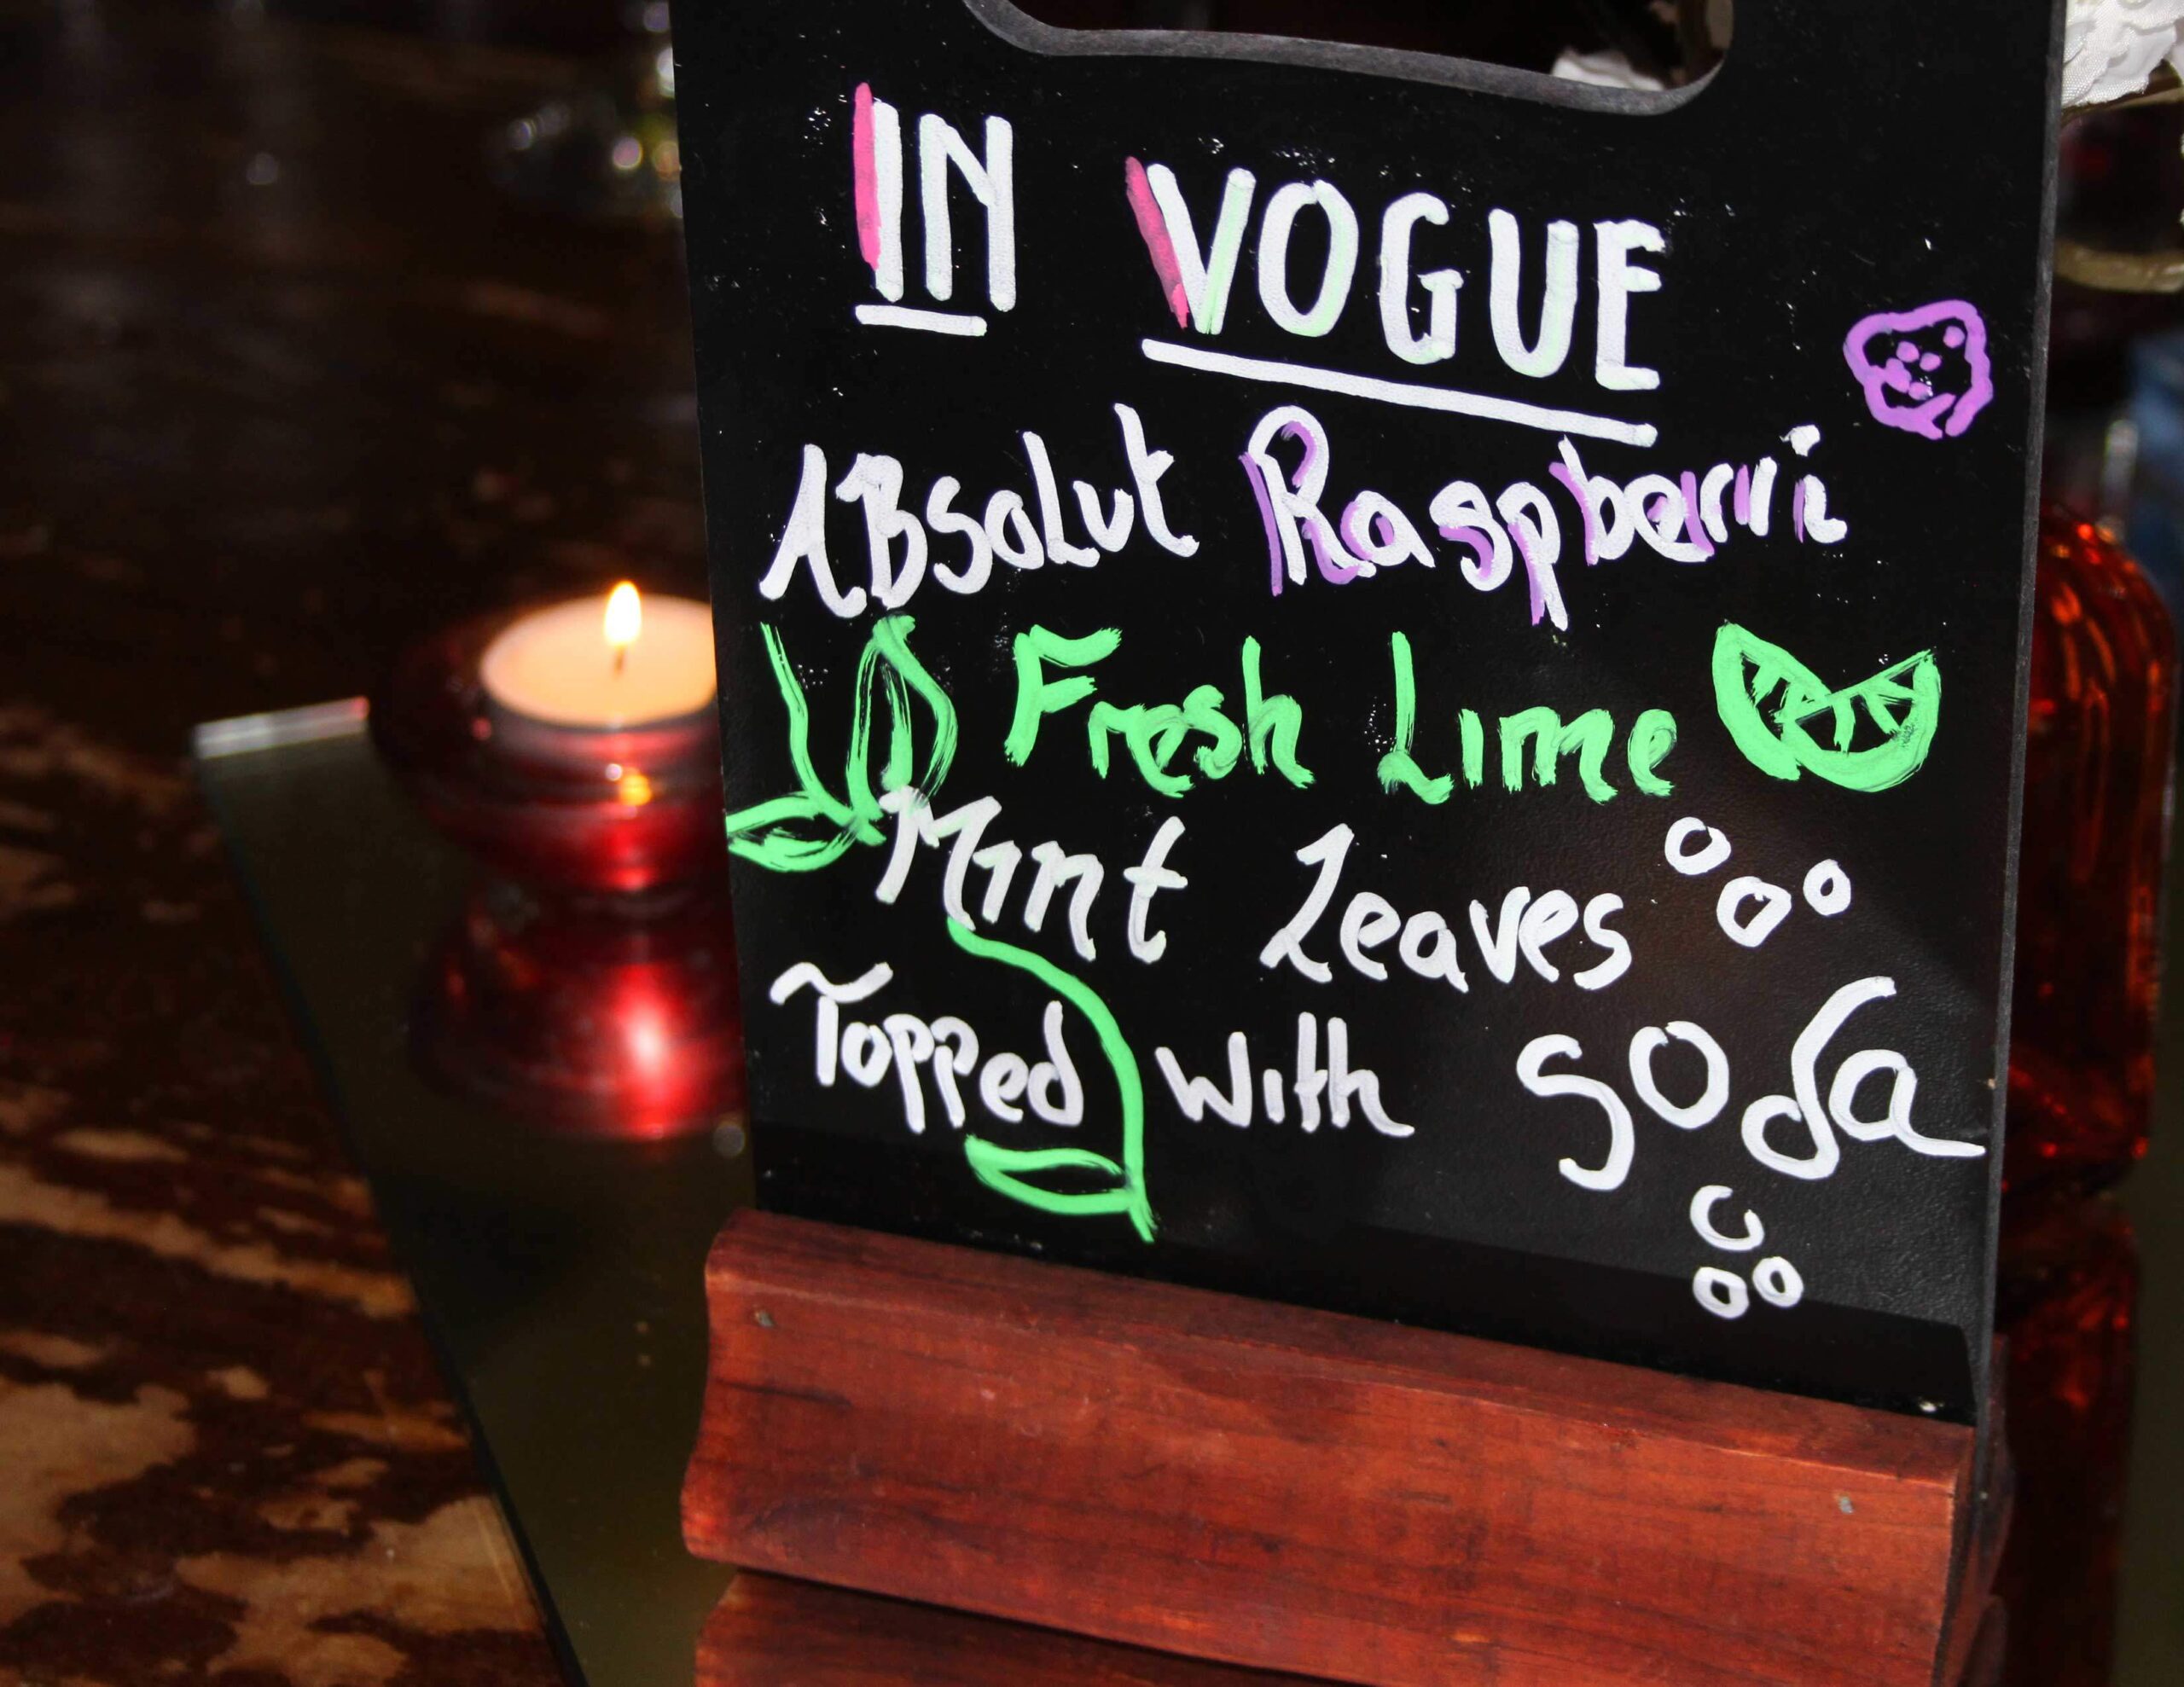 IN VOGUE
ABsoLut Raspberri
Fresh Lime
Mint Leaves
Topped with soda